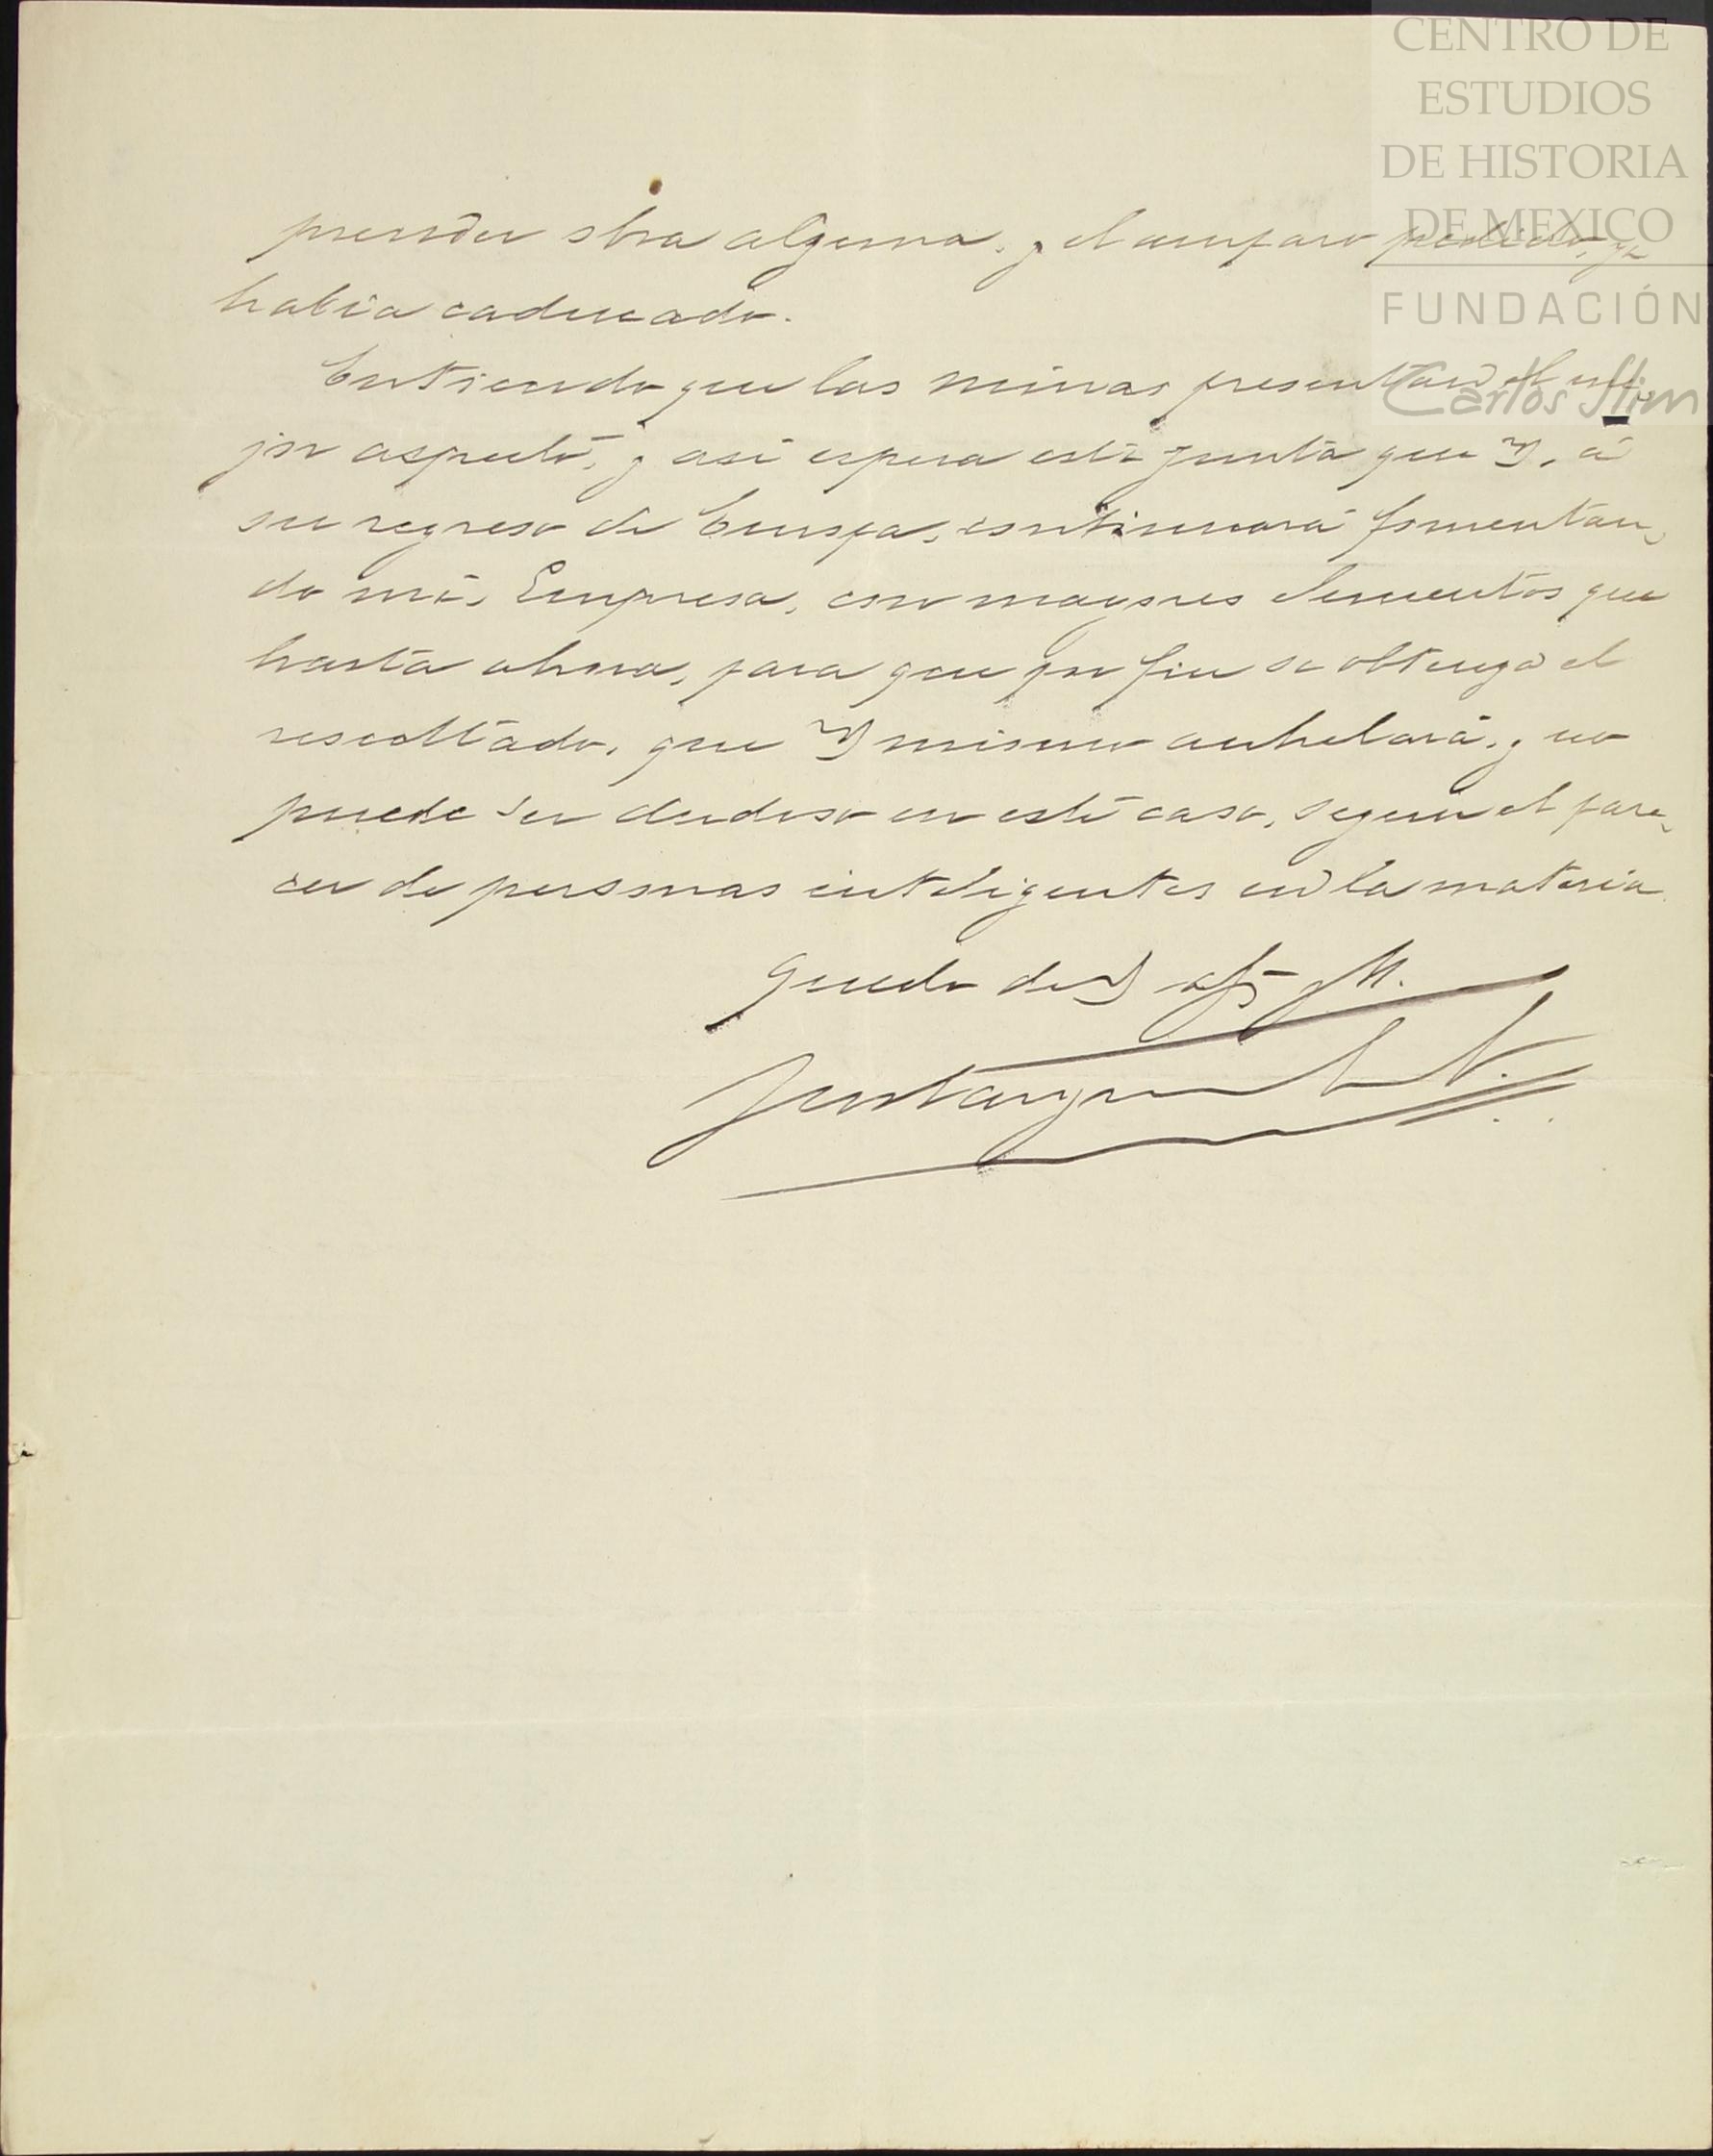 CENTRO DE
ESTUDIOS
DE HISTORIA
DE MEXICO
FUNDACIÓN
Carlos Slim
prender obra alguna, y el amparo pedido, ya
habia caducado.
Entiendo que las minas presentan el me-
jor aspecto, y así espera esta Junta que V, á
su regreso de Europa, continuará fomentan-
do Empresa, con mayores elementos que
hasta ahora, para que por fin se obtenga el
resultado, que V mismo anhelará, y no
puede ser dudoso en este caso, segun el pare-
cer de personas inteligentes en la materia.
Quedo de V